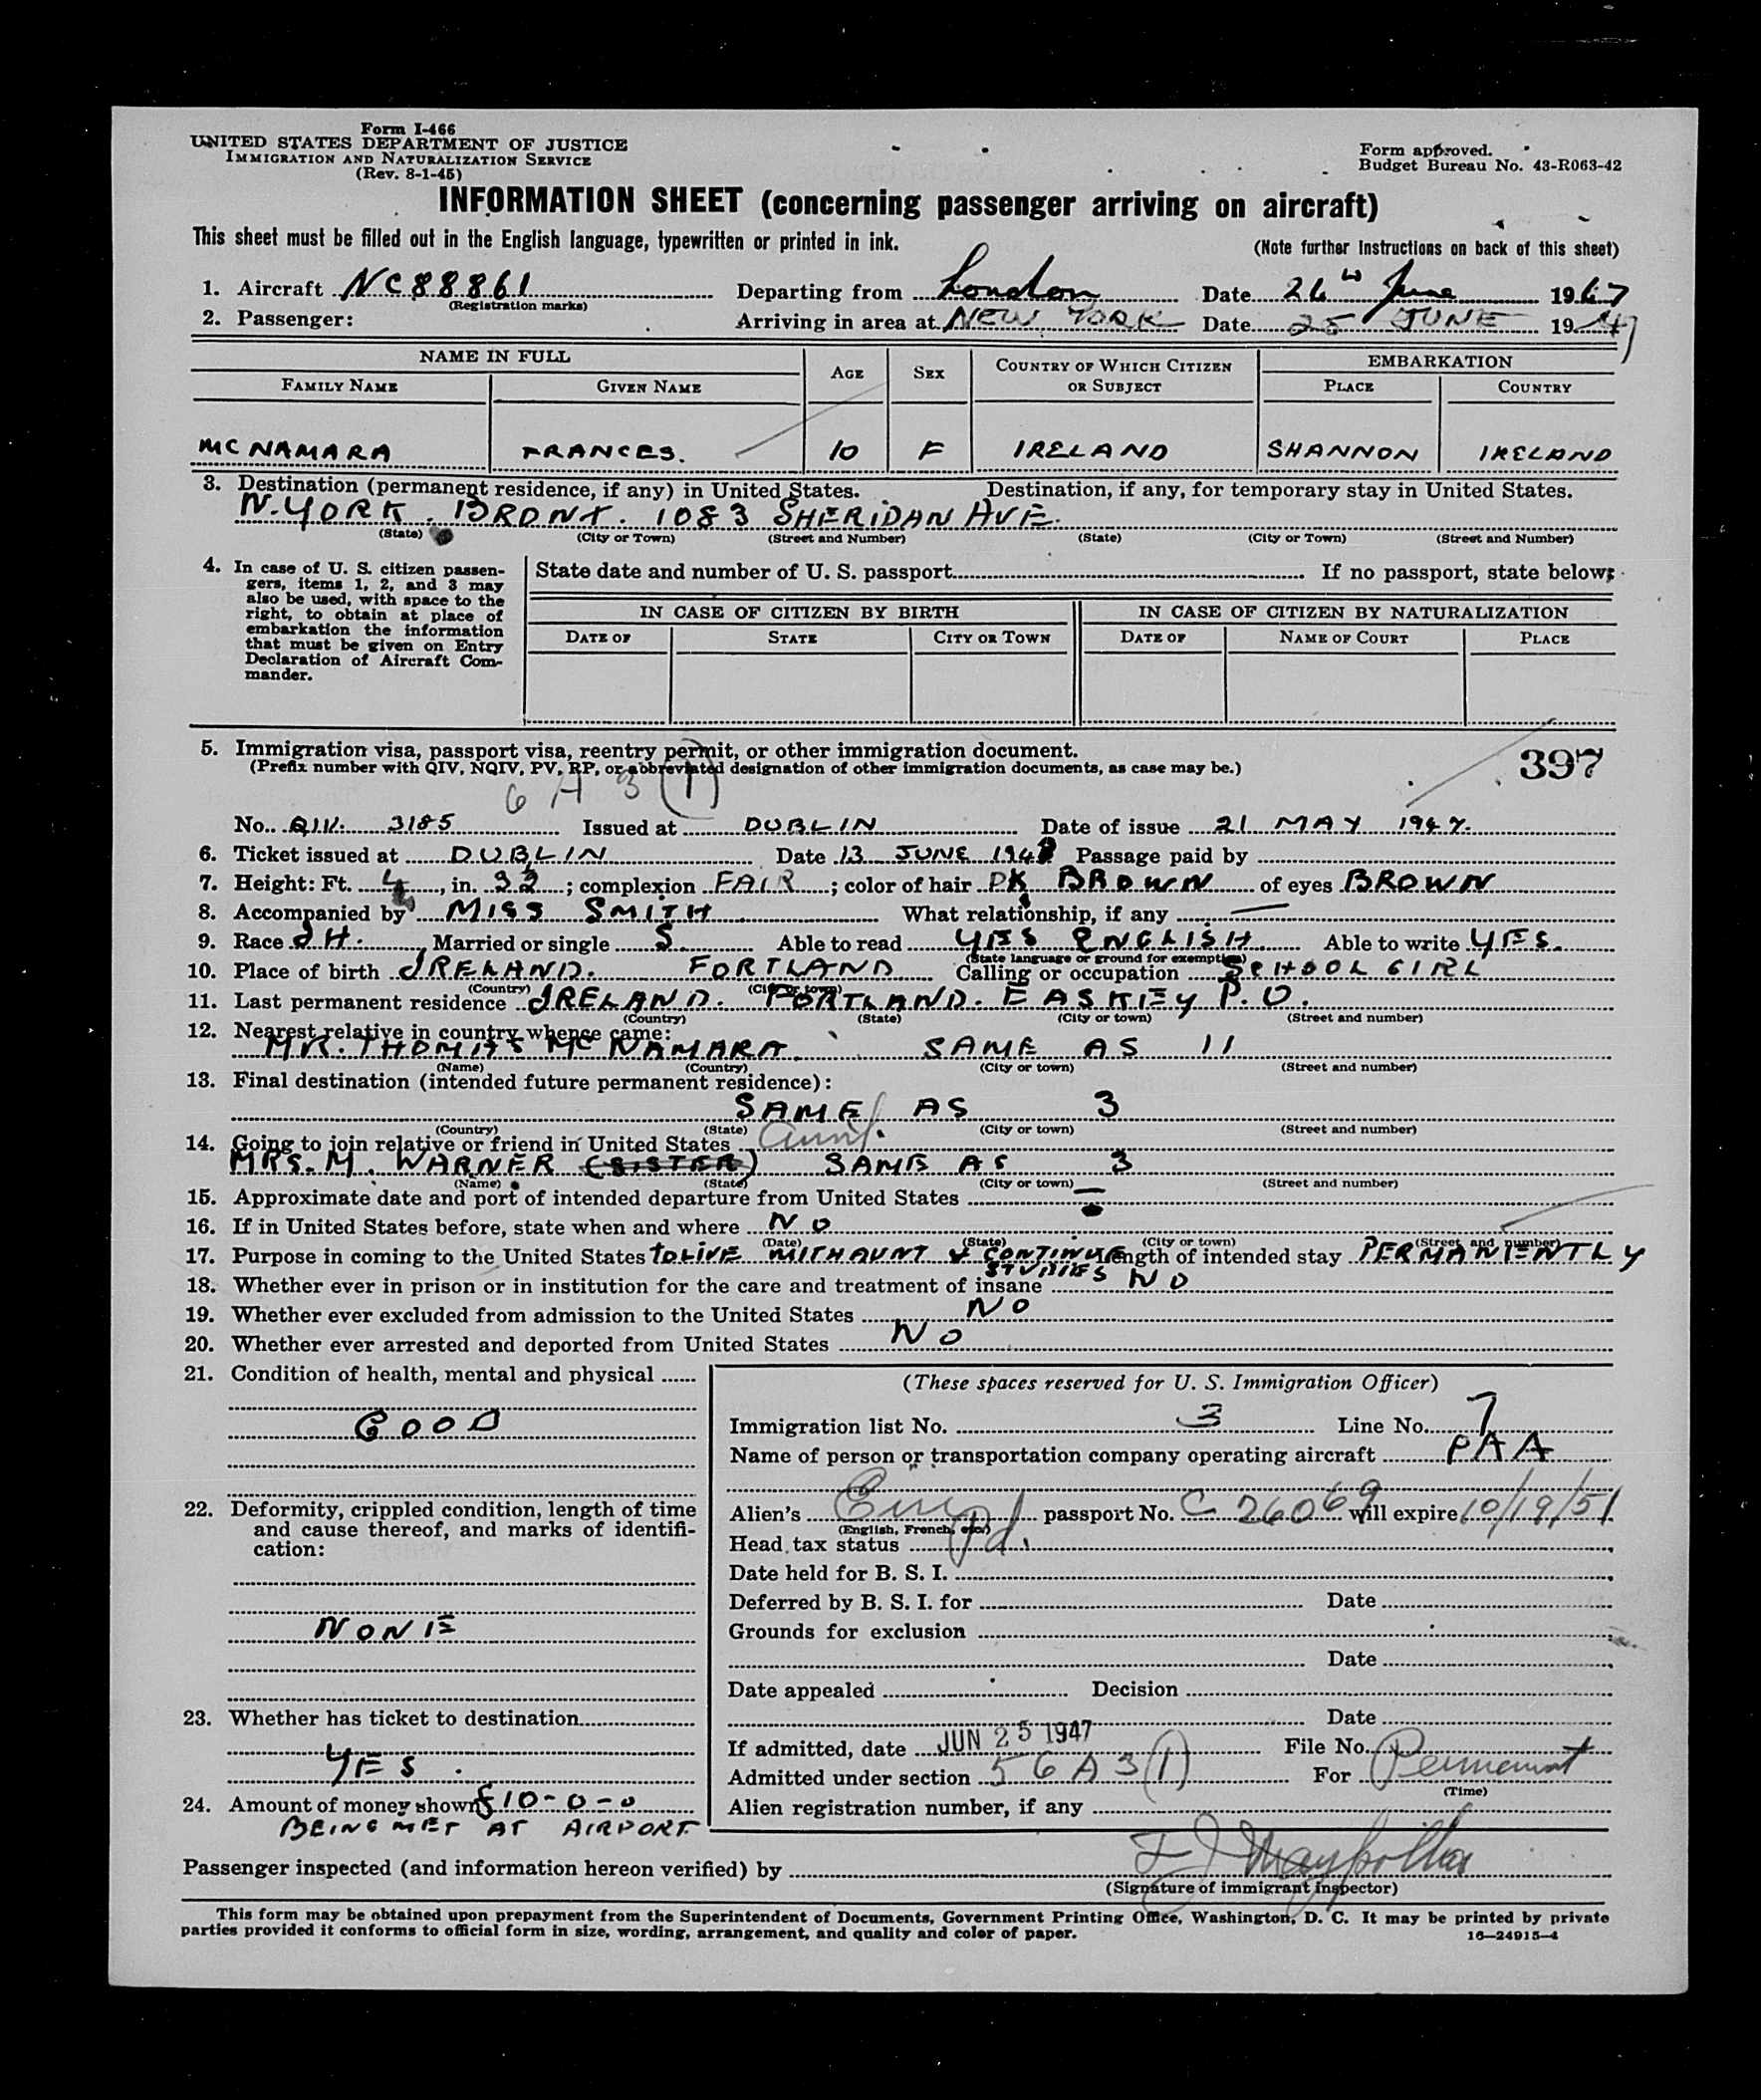 Form I-466
UNITED STATES DEPARTMENT OF JUSTICE
IMMIGRATION AND NATURALIZATION SERVICE
(Rev. 8-1-45)
Form approved.
Budget Bureau No. 43-R063-42
INFORMATION SHEET (concerning passenger arriving on aircraft)
This sheet must be filled out in the English language, typewritten or printed in ink.
(Note further instructions on back of this sheet)
1. Aircraft NC88861 Departing from London Date 24 June 1947
(Registration marks)
2. Passenger: Arriving in area at NEW YORK Date 25 JUNE 1947
NAME IN FULL AGE SEX COUNTRY OF WHICH CITIZEN OR SUBJECT EMBARKATION
FAMILY NAME GIVEN NAME PLACE COUNTRY
MC NAMARA FRANCES. 10 F IRELAND SHANNON IRELAND
3. Destination (permanent residence, if any) in United States. Destination, if any, for temporary stay in United States.
N. YORK. BRONX. 1083 SHERIDAN AVE.
(State) (City or Town) (Street and Number) (State) (City or Town) (Street and Number)
4. In case of U. S. citizen passen-
gers, items 1, 2, and 3 may
also be used, with space to the
right, to obtain at place of
embarkation the information
that must be given on Entry
Declaration of Aircraft Com-
mander.
State date and number of U. S. passport If no passport, state below:
IN CASE OF CITIZEN BY BIRTH IN CASE OF CITIZEN BY NATURALIZATION
DATE OF STATE CITY OR TOWN DATE OF NAME OF COURT PLACE
5. Immigration visa, passport visa, reentry permit, or other immigration document.
(Prefix number with QIV, NQIV, PV, RP, or abbreviated designation of other immigration documents, as case may be.)
397
6 A 3 (1)
No. QIV. 3185 Issued at DUBLIN Date of issue 21 MAY 1947.
6. Ticket issued at DUBLIN Date 13 JUNE 194 Passage paid by
7. Height: Ft. 4, in. ; complexion FAIR; color of hair DK BROWN of eyes BROWN
8. Accompanied by MISS SMITH What relationship, if any —
9. Race IH. Married or single S. Able to read YES ENGLISH. Able to write YES.
(State language or ground for exemption)
10. Place of birth IRELAND. FORTLAND Calling or occupation SCHOOL GIRL
(Country) (City or town)
11. Last permanent residence IRELAND. FORTLAND. EASKEY P.O.
(Country) (State) (City or town) (Street and number)
12. Nearest relative in country whence came:
MR. THOMAS MC NAMARA. SAME AS 11
(Name) (Country) (City or town) (Street and number)
13. Final destination (intended future permanent residence):
SAME AS 3
(Country) (State) (City or town) (Street and number)
14. Going to join relative or friend in United States aunt.
MRS. M. WARNER (SISTER) SAME AS 3
(Name) (State) (City or town) (Street and number)
15. Approximate date and port of intended departure from United States —
16. If in United States before, state when and where NO
(Date) (State) (City or town) (Street and number)
17. Purpose in coming to the United States TO LIVE WITH AUNT & CONTINUE Length of intended stay PERMANENTLY
STUDIES
18. Whether ever in prison or in institution for the care and treatment of insane NO
19. Whether ever excluded from admission to the United States NO
20. Whether ever arrested and deported from United States NO
21. Condition of health, mental and physical
GOOD
22. Deformity, crippled condition, length of time
and cause thereof, and marks of identifi-
cation:
NONE
23. Whether has ticket to destination
YES.
24. Amount of money shown £10-0-0
BEING MET AT AIRPORT.
(These spaces reserved for U. S. Immigration Officer)
Immigration list No. 3 Line No. 7
Name of person or transportation company operating aircraft PAA
Alien's passport No. C 26069 will expire 10/19/51
(English, French, etc.)
Head tax status Pd.
Date held for B. S. I.
Deferred by B. S. I. for Date
Grounds for exclusion
Date
Date appealed Decision
Date
If admitted, date JUN 25 1947 File No.
Admitted under section 5 6 A 3 (1) For Permanent
(Time)
Alien registration number, if any
Passenger inspected (and information hereon verified) by
(Signature of immigrant inspector)
This form may be obtained upon prepayment from the Superintendent of Documents, Government Printing Office, Washington, D. C. It may be printed by private
parties provided it conforms to official form in size, wording, arrangement, and quality and color of paper.
16—24915-4